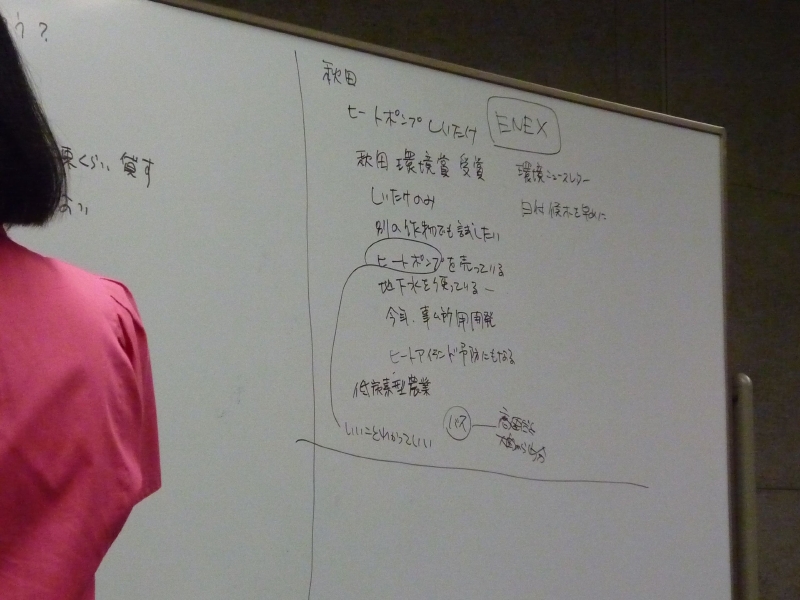 う?
くらい貸す
秋田
ヒートポンプしいたけ
ENEX
秋田環境賞受賞
環境ニュースレター
しいたけのみ
日付候補を早めに
別の作物でも試したい
ヒートポンプを売っている
地下水を使っている
今年、事ム所用開発
ヒートアイランド予防にもなる
低炭素型農業
いいことわかっていい
バス